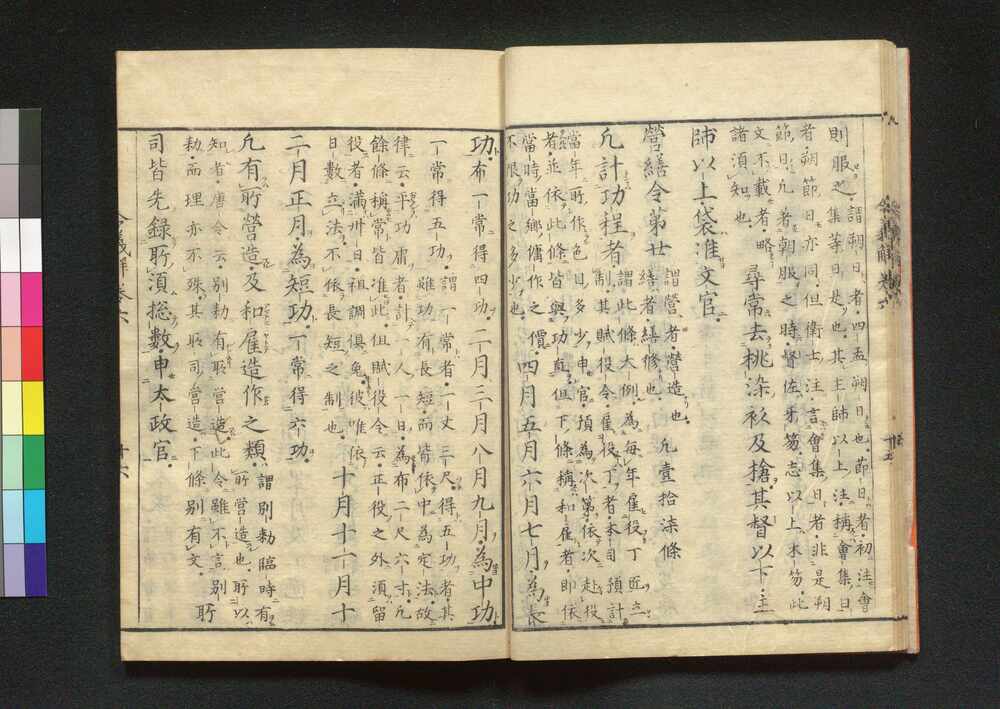 則服之
謂朔日者四孟朔日也節日者初注會
集等日是也其主帥以上注稱會集日
者朔節日亦同但衛士注言會集日者非是朔
節日凡者朝服之時督佐牙笏志以上木笏此
文不載者略
諸須知也
尋常去桃染衫及搶其督以下主
帥以上袋准文官
營繕令第廿
謂營者營造也
繕者繕修也
凡壹拾柒條
凡計功程者
謂此條大例為每年雇役丁匠立
制其賦役令雇役丁者本司預計
當年所作色目多少申官預為次第依次赴役
者並依此條皆與功直但下條稱和雇者即依
當時當鄉傭作之價
不限功之多少也
四月五月六月七月為長
功布一常得四功二月三月八月九月為中功
一常得五功
謂一常者一丈三尺得五功者其
雖功有長短而皆依中為定法故
律云平功庸者計一人一日為布二尺六寸凡
餘條稱常皆准此但賦役令云正役之外須留
役者滿卅日租調俱免彼唯依
日數立法不依長短之制也
十月十一月十
二月正月為短功一常得六功
凡有所營造及和雇造作之類
謂別勅臨時有
所營造也所以
知者唐令云別勅有所營造此令雖不言別
勅而理亦不殊其所司營造下條別有文
所
司皆先錄所須総數申太政官